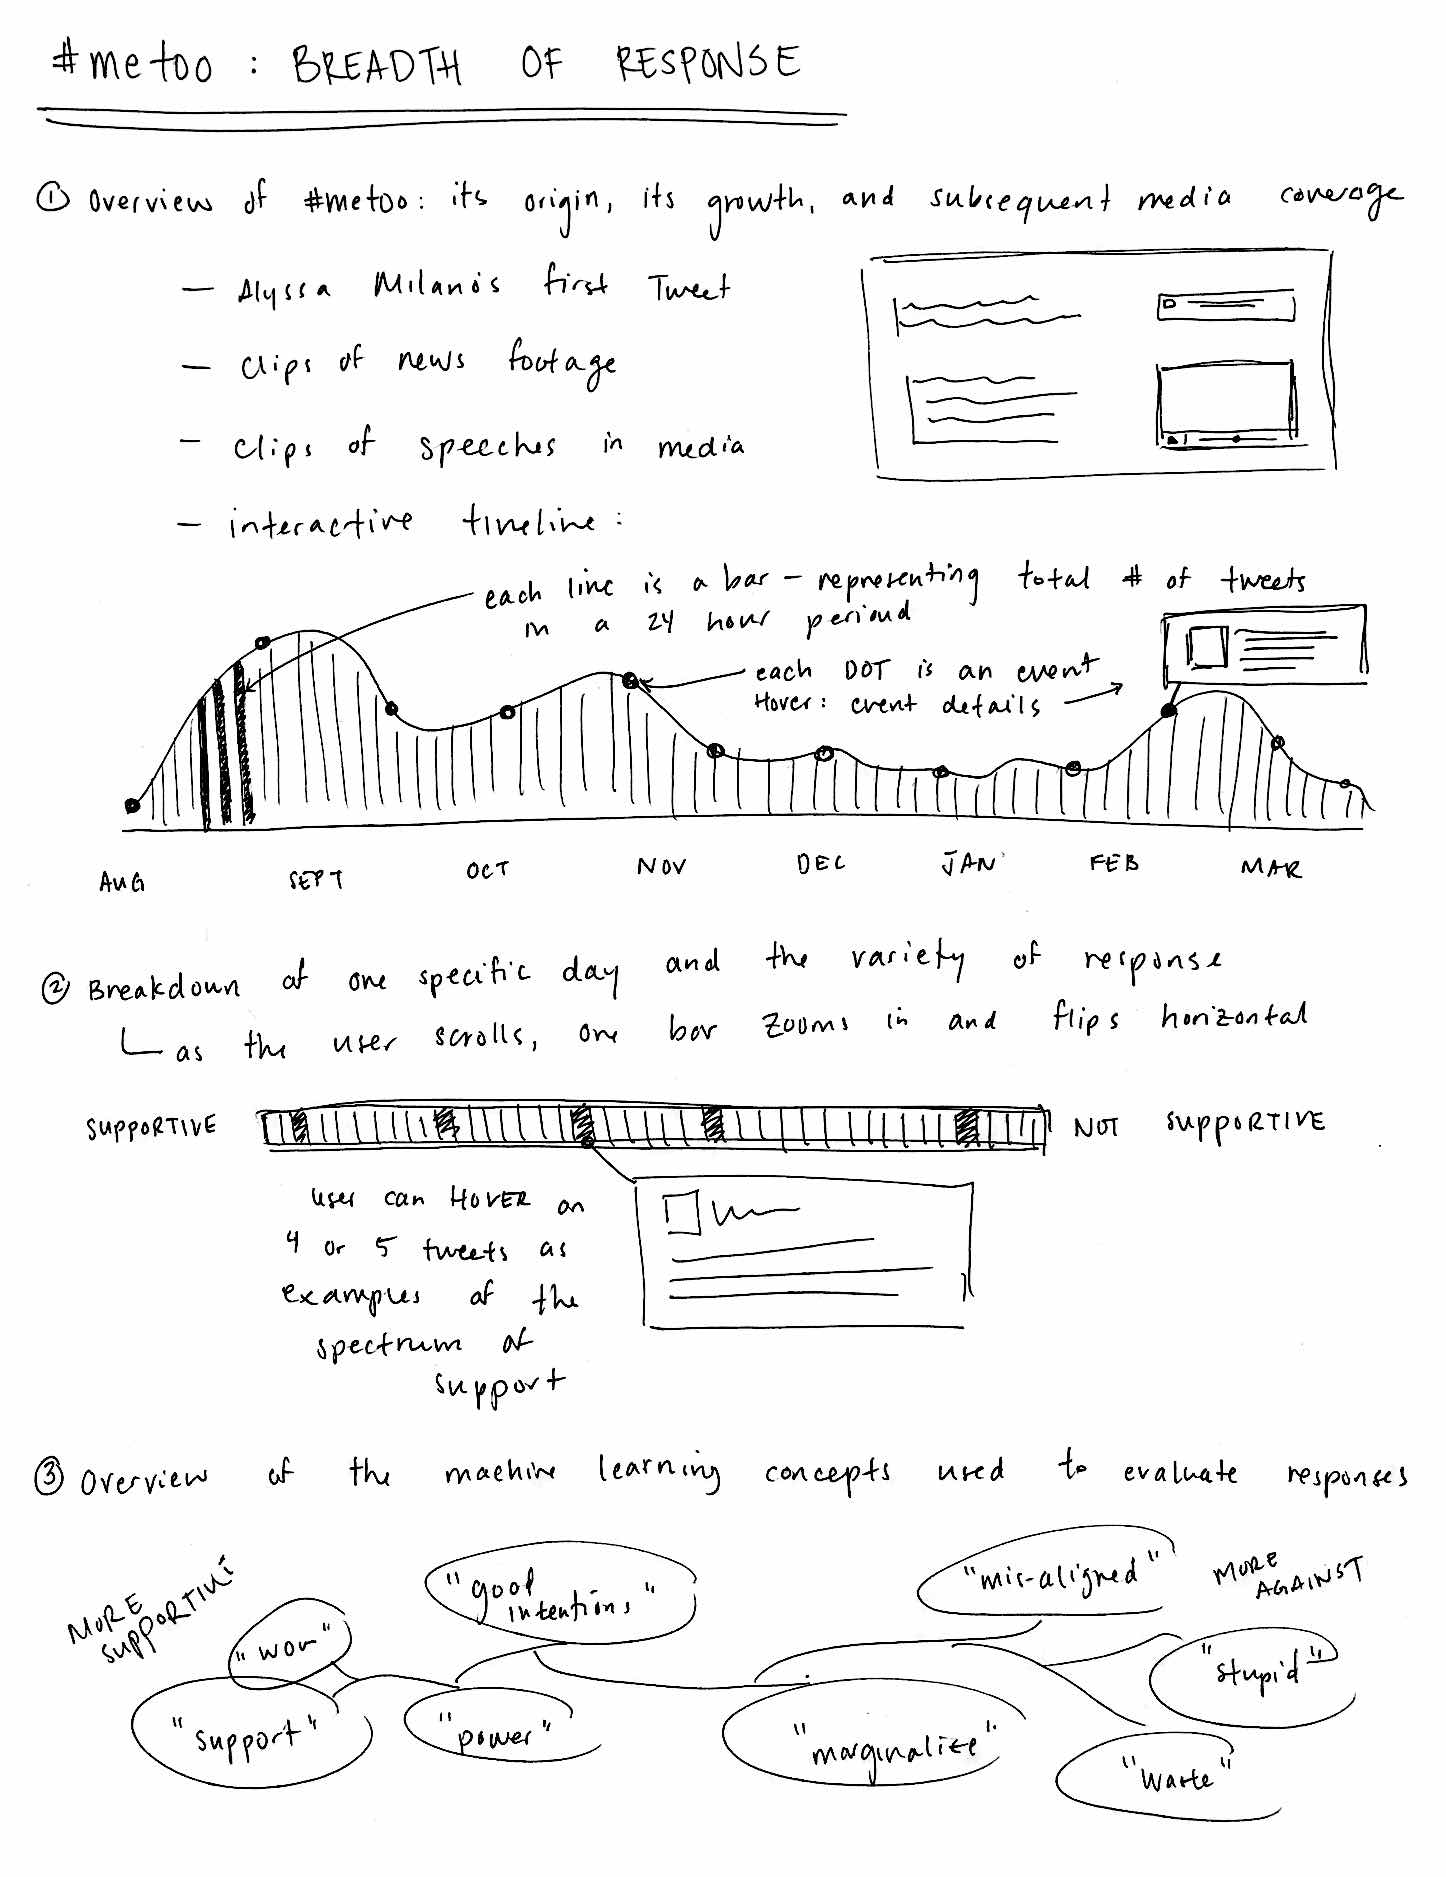 #metoo : BREADTH OF RESPONSE
① Overview of #metoo: its origin, its growth, and subsequent media coverage
— Alyssa Milano's first Tweet
— Clips of news footage
— Clips of speeches in media
— interactive timeline :
each line is a bar — representing total # of tweets
in a 24 hour period
each DOT is an event
Hover: event details
AUG SEPT OCT NOV DEC JAN FEB MAR
② Breakdown of one specific day and the variety of response
as the user scrolls, one bar zooms in and flips horizontal
SUPPORTIVE NOT SUPPORTIVE
user can HOVER on
4 or 5 tweets as
examples of the
spectrum of
support
③ Overview of the machine learning concepts used to evaluate responses
MORE
SUPPORTIVE
"wow"
"support"
"good
intentions"
"power"
"mis-aligned"
"marginalize"
MORE
AGAINST
"stupid"
"waste"